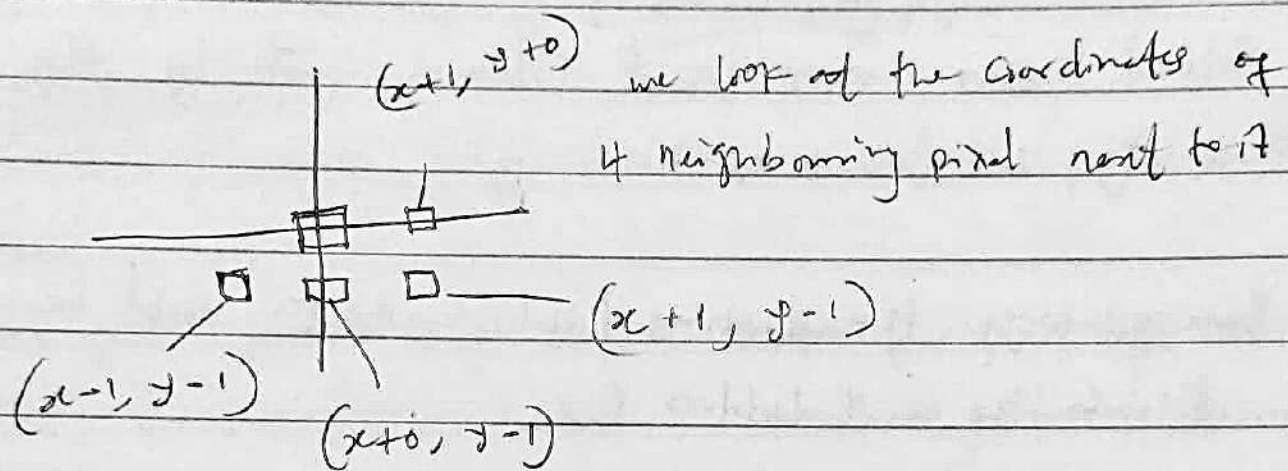 (x+1, y+0) we look at the coordinates of
4 neighbouring pixel next to it
(x+1, y-1)
(x-1, y-1)
(x+0, y-1)